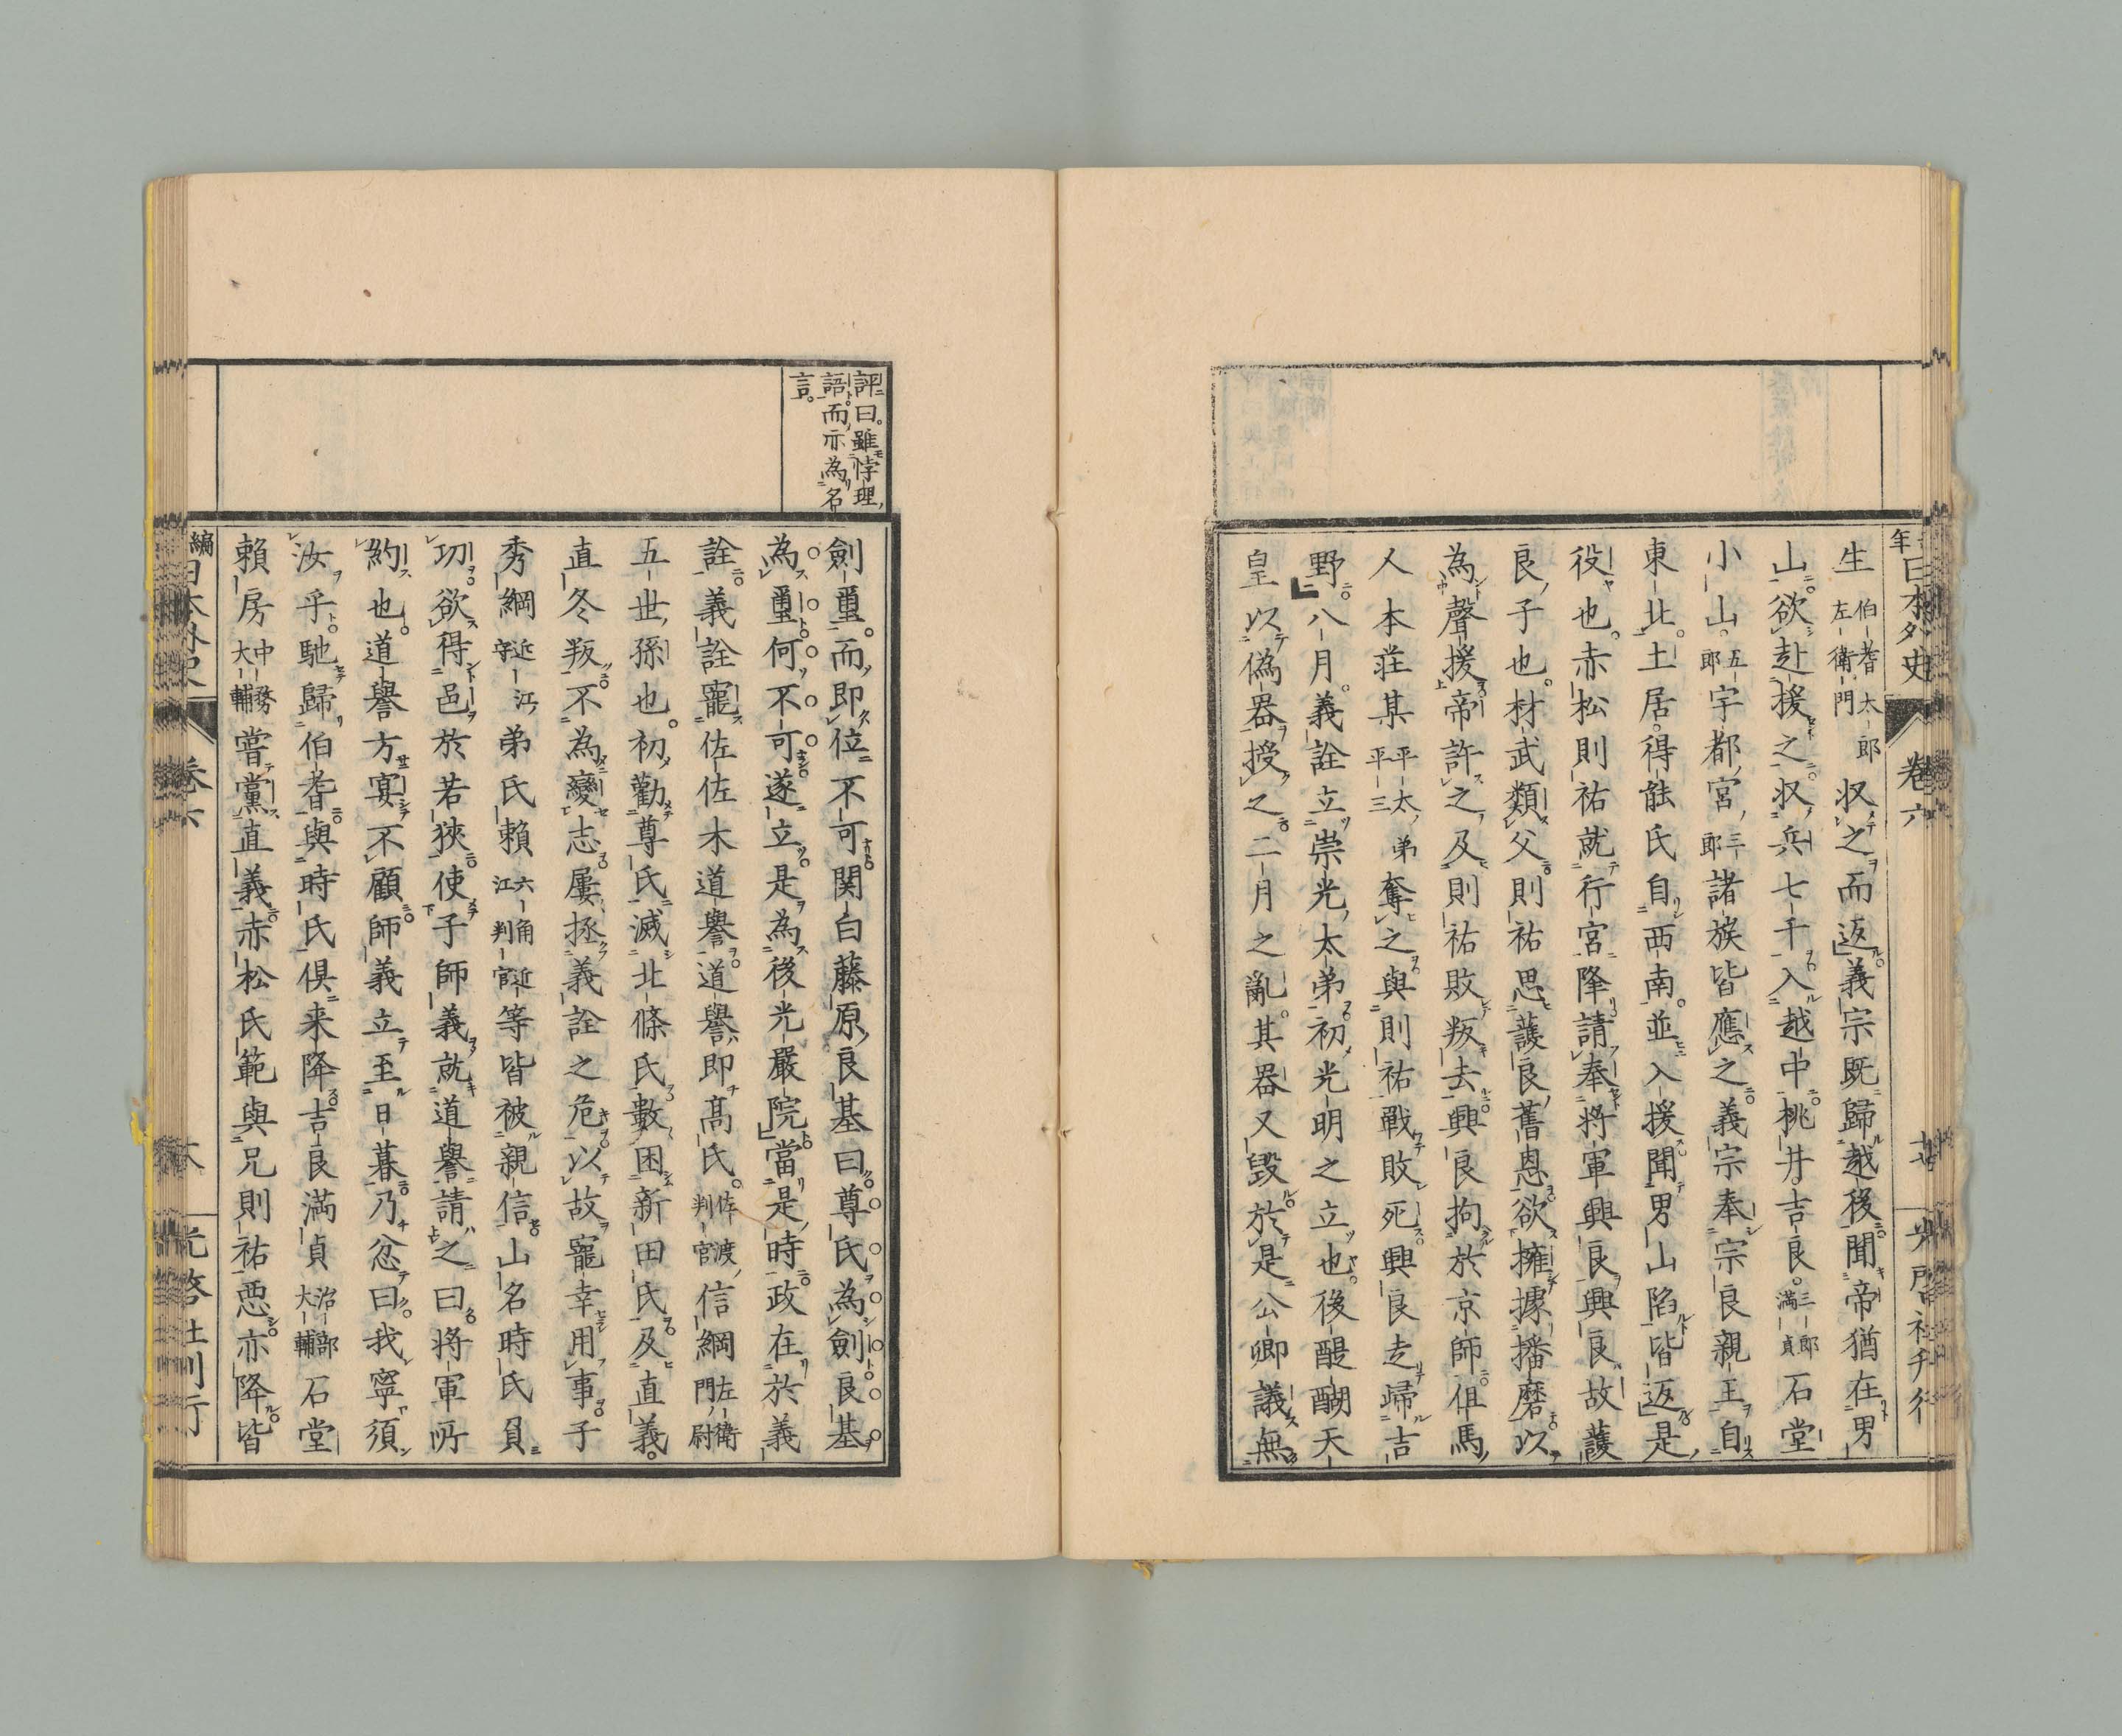 生伯耆太郎左衛門収之而返義宗既歸越後聞帝猶在男
山欲赴援之収兵七千入越中桃井吉良三郎満貞石堂
小山五郎宇都宮三郎諸族皆應之義宗奉宗良親王自
東北土居得能氏自西南並入援聞男山陷皆返是
役也赤松則祐就行宮降請奉将軍興良興良故護
良子也材武類父則祐思護良舊恩欲擁據播磨以
為聲援帝許之及則祐敗叛去興良拘於京師但馬
人本荘某平太弟平三奪之與則祐戰敗死興良走歸吉
野八月義詮立崇光太弟初光明之立也後醍醐天
皇以偽器授之二月之亂其器又毀於是公卿議無
卷六
評曰雖悖理
語而亦為名
言
劍璽而即位不可関白藤原良基曰尊氏為劍良基
為璽何不可遂立是為後光嚴院當是時政在於義
詮義詮寵佐佐木道譽道譽即高氏佐渡判官信綱左衛門尉
五世孫也初勸尊氏滅北條氏數困新田氏及直義
直冬叛不為變志屢拯義詮之危以故寵幸用事子
秀綱近江守弟氏賴六角近江判官等皆被親信山名時氏負
功欲得邑於若狹使子師義就道譽請之曰将軍所
約也道譽方宴不顧師義立至日暮乃忿曰我寧須
汝乎馳歸伯耆與時氏俱来降吉良満貞治部大輔石堂
賴房中務大輔嘗黨直義赤松氏範與兄則祐惡亦降皆
卷六
光啓社刊行